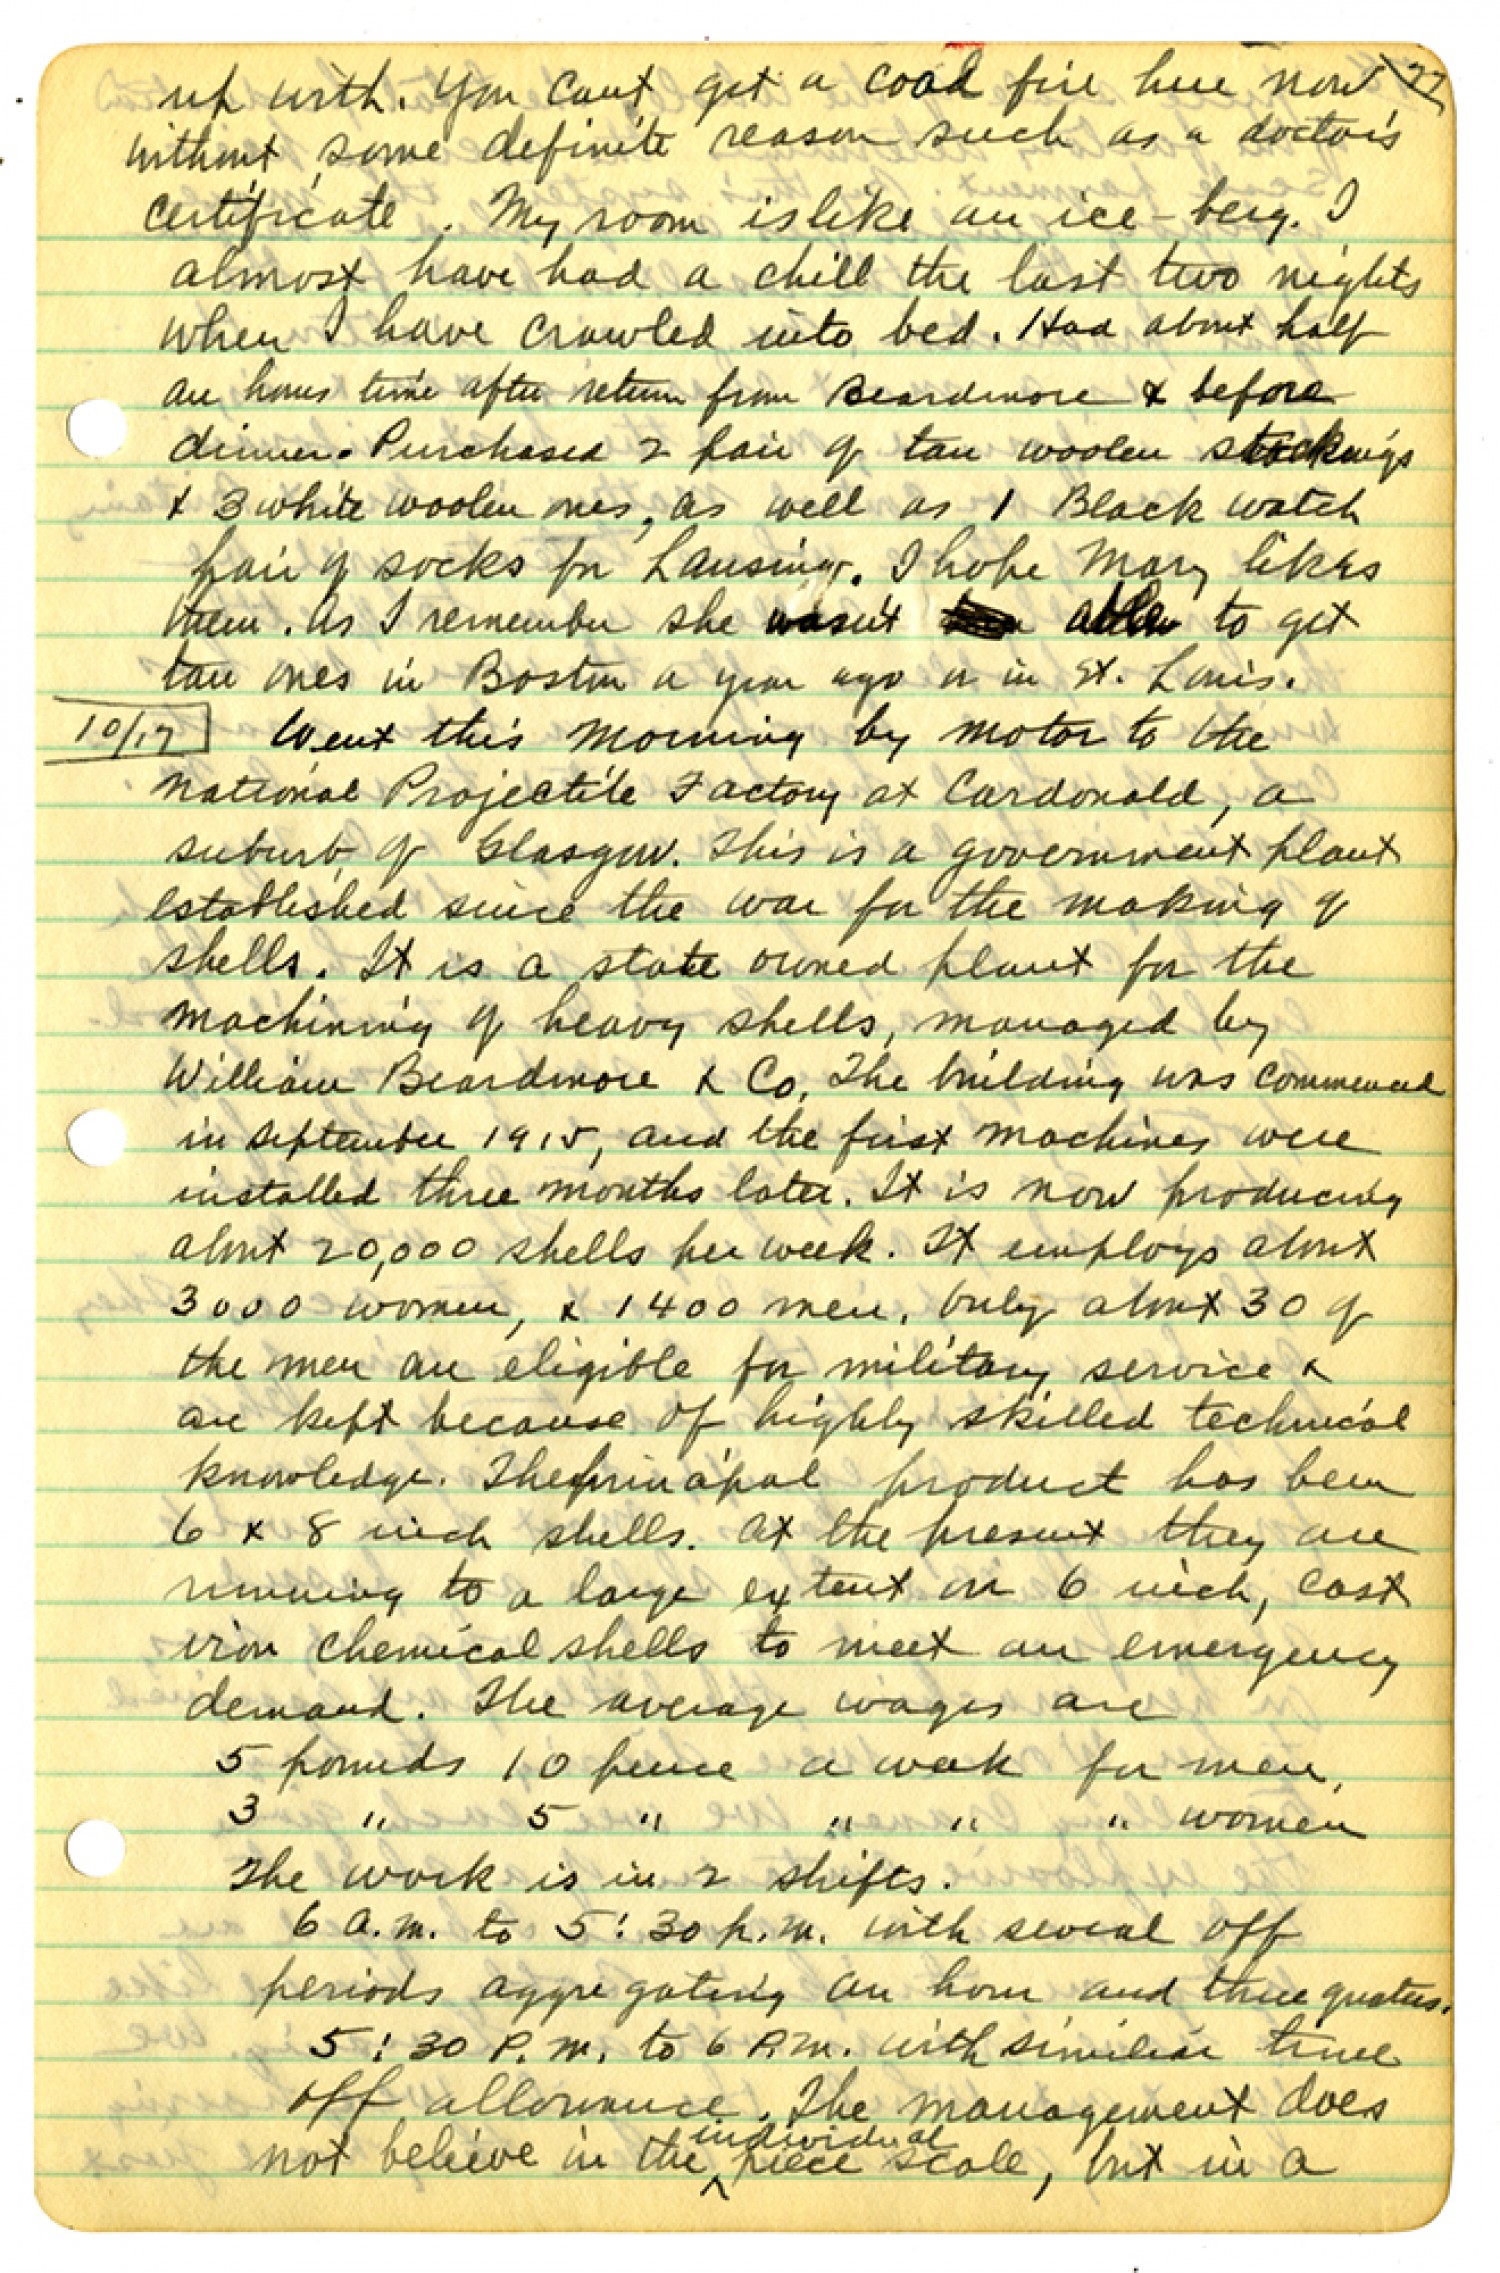 up with. You cant get a coal fire here now 77
without some definite reason such as a doctors
certificate. My room is like an ice-berg. I
almost have had a chill the last two nights
when I have crawled into bed. Had about half
an hours time after return from Beardmore & before
dinner. Purchased 2 pair of tan woolen stockings
& 3 white woolen ones, as well as 1 Black watch
pair of socks for Lansing. I hope Mary likes
them. As I remember she wasn't able to get
tan ones in Boston a year ago or in St. Louis.
10/17 Went this morning by motor to the
National Projectile Factory at Cardonald, a
suburb of Glasgow. This is a government plant
established since the war for the making of
shells. It is a state owned plant for the
machining of heavy shells, managed by
William Beardmore & Co. The building was commenced
in September 1915, and the first machines were
installed three months later. It is now producing
about 20,000 shells per week. It employs about
3000 women, & 1400 men. Only about 30 of
the men are eligible for military service &
are kept because of highly skilled technical
knowledge. The principal product has been
6 & 8 inch shells. At the present they are
running to a large extent on 6 inch, cast
iron chemical shells to meet an emergency
demand. The average wages are
5 pounds 10 pence a week for men,
3 " 5 " " " " women
The work is in 2 shifts.
6 A.M. to 5:30 p.m. with several off
periods aggregating an hour and three quaters.
5:30 P.M. to 6 P.M. with similiar time
off allowance. The management does
not believe in the individual piece scale, but in a